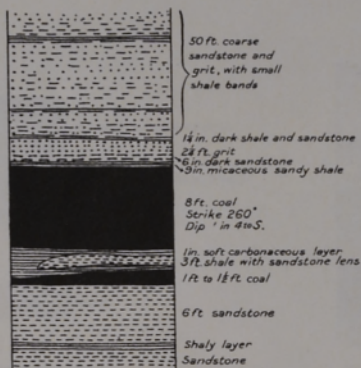 50 ft. coarse
sandstone and
grit, with small
shale bands
1¼ in. dark shale and sandstone
2¼ ft. grit
6 in. dark sandstone
9 in. micaceous sandy shale
8 ft. coal
Strike 260°
Dip 1 in 4 to S.
1 in. soft carbonaceous layer
3 ft. shale with sandstone lens
1 ft to 1½ ft coal
6 ft sandstone
Shaly layer
Sandstone